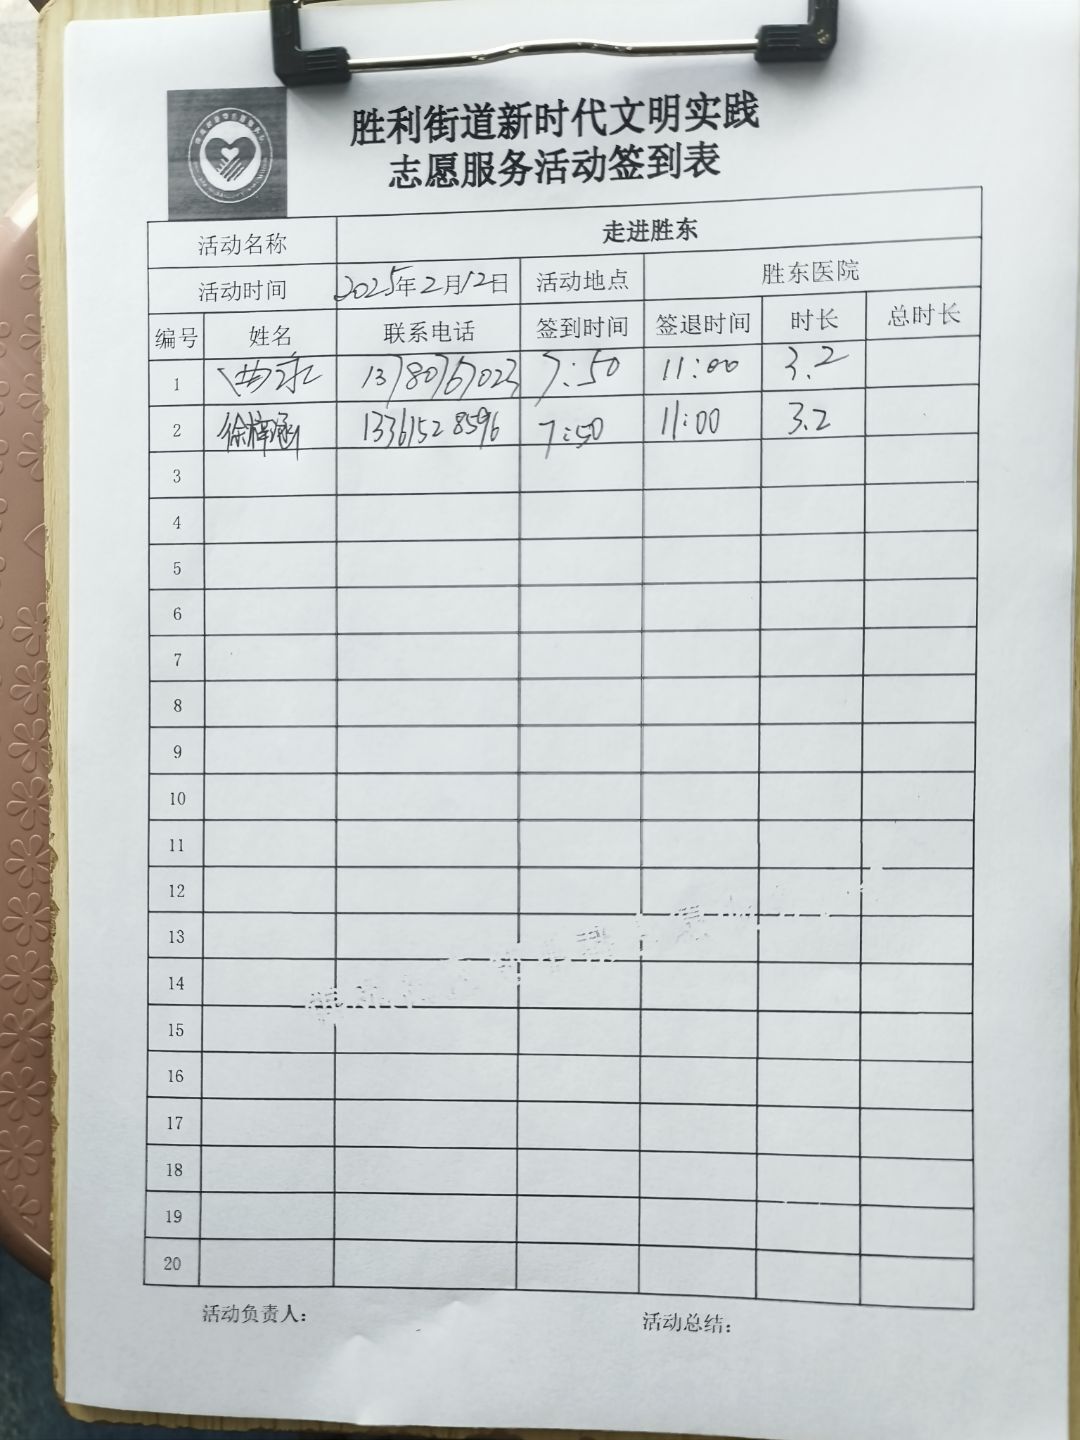 胜利街道新时代文明实践
志愿服务活动签到表
活动名称 走进胜东
活动时间 2025年2月12日 活动地点 胜东医院
编号 姓名 联系电话 签到时间 签退时间 时长 总时长
1 13780767023 7:50 11:00 3.2
2 徐梓涵 13361528596 7:50 11:00 3.2
3
4
5
6
7
8
9
10
11
12
13
14
15
16
17
18
19
20
活动负责人: 活动总结: